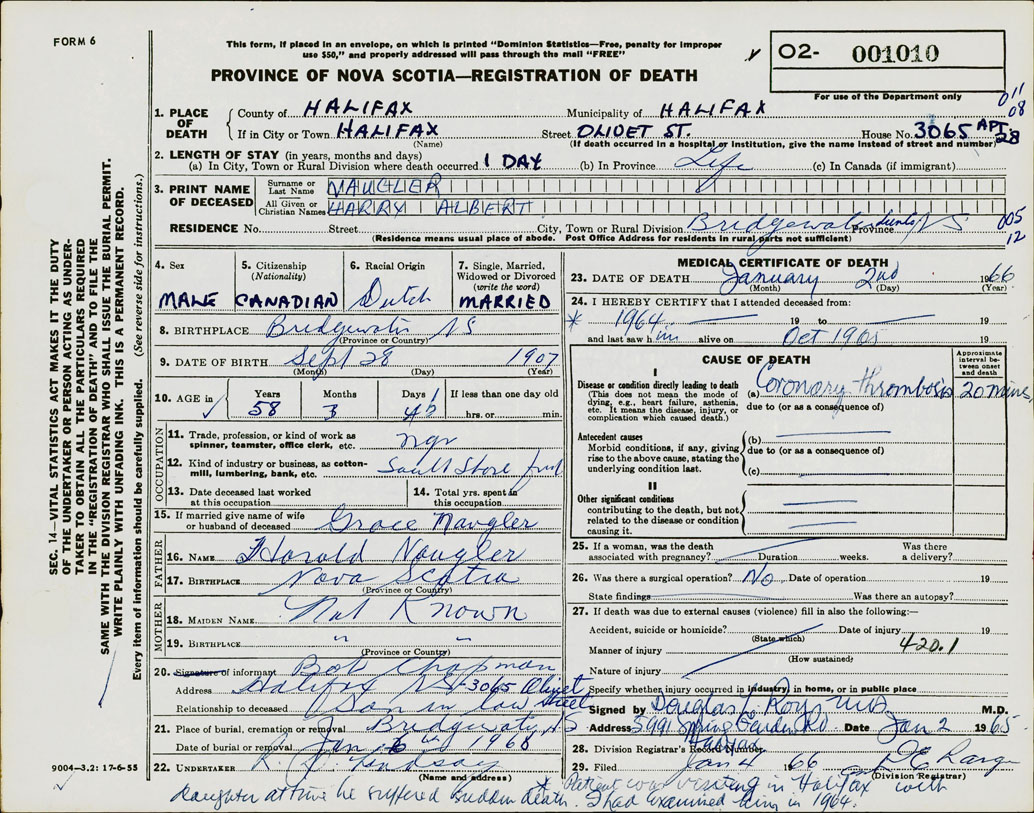 FORM 6
This form, if placed in an envelope, on which is printed "Dominion Statistics—Free, penalty for improper
use $50," and properly addressed will pass through the mail "FREE"
PROVINCE OF NOVA SCOTIA—REGISTRATION OF DEATH
02- 001010
For use of the Department only
011
08
1. PLACE OF DEATH County of HALIFAX Municipality of HALIFAX
If in City or Town HALIFAX Street OLIVET ST. House No. 3065 APT 28
(Name) (If death occurred in a hospital or institution, give the name instead of street and number)
2. LENGTH OF STAY (in years, months and days)
(a) In City, Town or Rural Division where death occurred 1 DAY (b) In Province Life (c) In Canada (if immigrant)
3. PRINT NAME OF DECEASED Surname or Last Name NAUGLER
All Given or Christian Names HARRY ALBERT
RESIDENCE No. Street City, Town or Rural Division Bridgewater Province NS
005
12
(Residence means usual place of abode. Post Office Address for residents in rural parts not sufficient)
4. Sex MALE
5. Citizenship (Nationality) CANADIAN
6. Racial Origin Dutch
7. Single, Married, Widowed or Divorced (write the word) MARRIED
8. BIRTHPLACE Bridgewater NS
(Province or Country)
9. DATE OF BIRTH Sept 28 1907
(Month) (Day) (Year)
10. AGE in Years 58 Months 3 Days If less than one day old hrs. or min.
OCCUPATION
11. Trade, profession, or kind of work as spinner, teamster, office clerk, etc. mgr
12. Kind of industry or business, as cotton-mill, lumbering, bank, etc. South Shore
13. Date deceased last worked at this occupation
14. Total yrs. spent in this occupation
15. If married give name of wife or husband of deceased Grace Naugler
FATHER
16. NAME Harold Naugler
17. BIRTHPLACE Nova Scotia
(Province or Country)
MOTHER
18. MAIDEN NAME Not Known
19. BIRTHPLACE " "
(Province or Country)
20. Signature of informant Bob Chapman
Address Halifax NS 3065 Olivet Street
Relationship to deceased Son in law
21. Place of burial, cremation or removal Bridgewater, NS
Date of burial or removal Jan
22. UNDERTAKER Lindsay
(Name and address)
MEDICAL CERTIFICATE OF DEATH
23. DATE OF DEATH January 2nd 1966
(Month) (Day) (Year)
24. I HEREBY CERTIFY that I attended deceased from:
* 1964 19 to 19
and last saw him alive on Oct 1965 19
CAUSE OF DEATH
Approximate interval between onset and death
I
Disease or condition directly leading to death
(This does not mean the mode of dying, e.g., heart failure, asthenia, etc. It means the disease, injury, or complication which caused death.)
(a) Coronary thrombosis 20 mins.
due to (or as a consequence of)
Antecedent causes
Morbid conditions, if any, giving rise to the above cause, stating the underlying condition last.
(b)
due to (or as a consequence of)
(c)
II
Other significant conditions
contributing to the death, but not related to the disease or condition causing it.
25. If a woman, was the death associated with pregnancy? Duration weeks. Was there a delivery?
26. Was there a surgical operation? No Date of operation 19
State findings Was there an autopsy?
27. If death was due to external causes (violence) fill in also the following:—
Accident, suicide or homicide? Date of injury 19
(State which)
Manner of injury 420.1
(How sustained)
Nature of injury
Specify whether injury occurred in industry, in home, or in public place
Signed by Douglas L. Roy M.D.
Address 5991 Spring Garden Rd. Halifax Date Jan 2 1965
28. Division Registrar's Record Number
29. Filed Jan 4 66
(Division Registrar)
* Patient was visiting in Halifax with
daughter at time he suffered sudden death. I had examined him in 1964.
SEC. 14—VITAL STATISTICS ACT MAKES IT THE DUTY
OF THE UNDERTAKER OR PERSON ACTING AS UNDER-
TAKER TO OBTAIN ALL THE PARTICULARS REQUIRED
IN THE "REGISTRATION OF DEATH" AND TO FILE THE
SAME WITH THE DIVISION REGISTRAR WHO SHALL ISSUE THE BURIAL PERMIT.
WRITE PLAINLY WITH UNFADING INK. THIS IS A PERMANENT RECORD.
Every item of information should be carefully supplied. (See reverse side for instructions.)
9004—3.2: 17-6-55